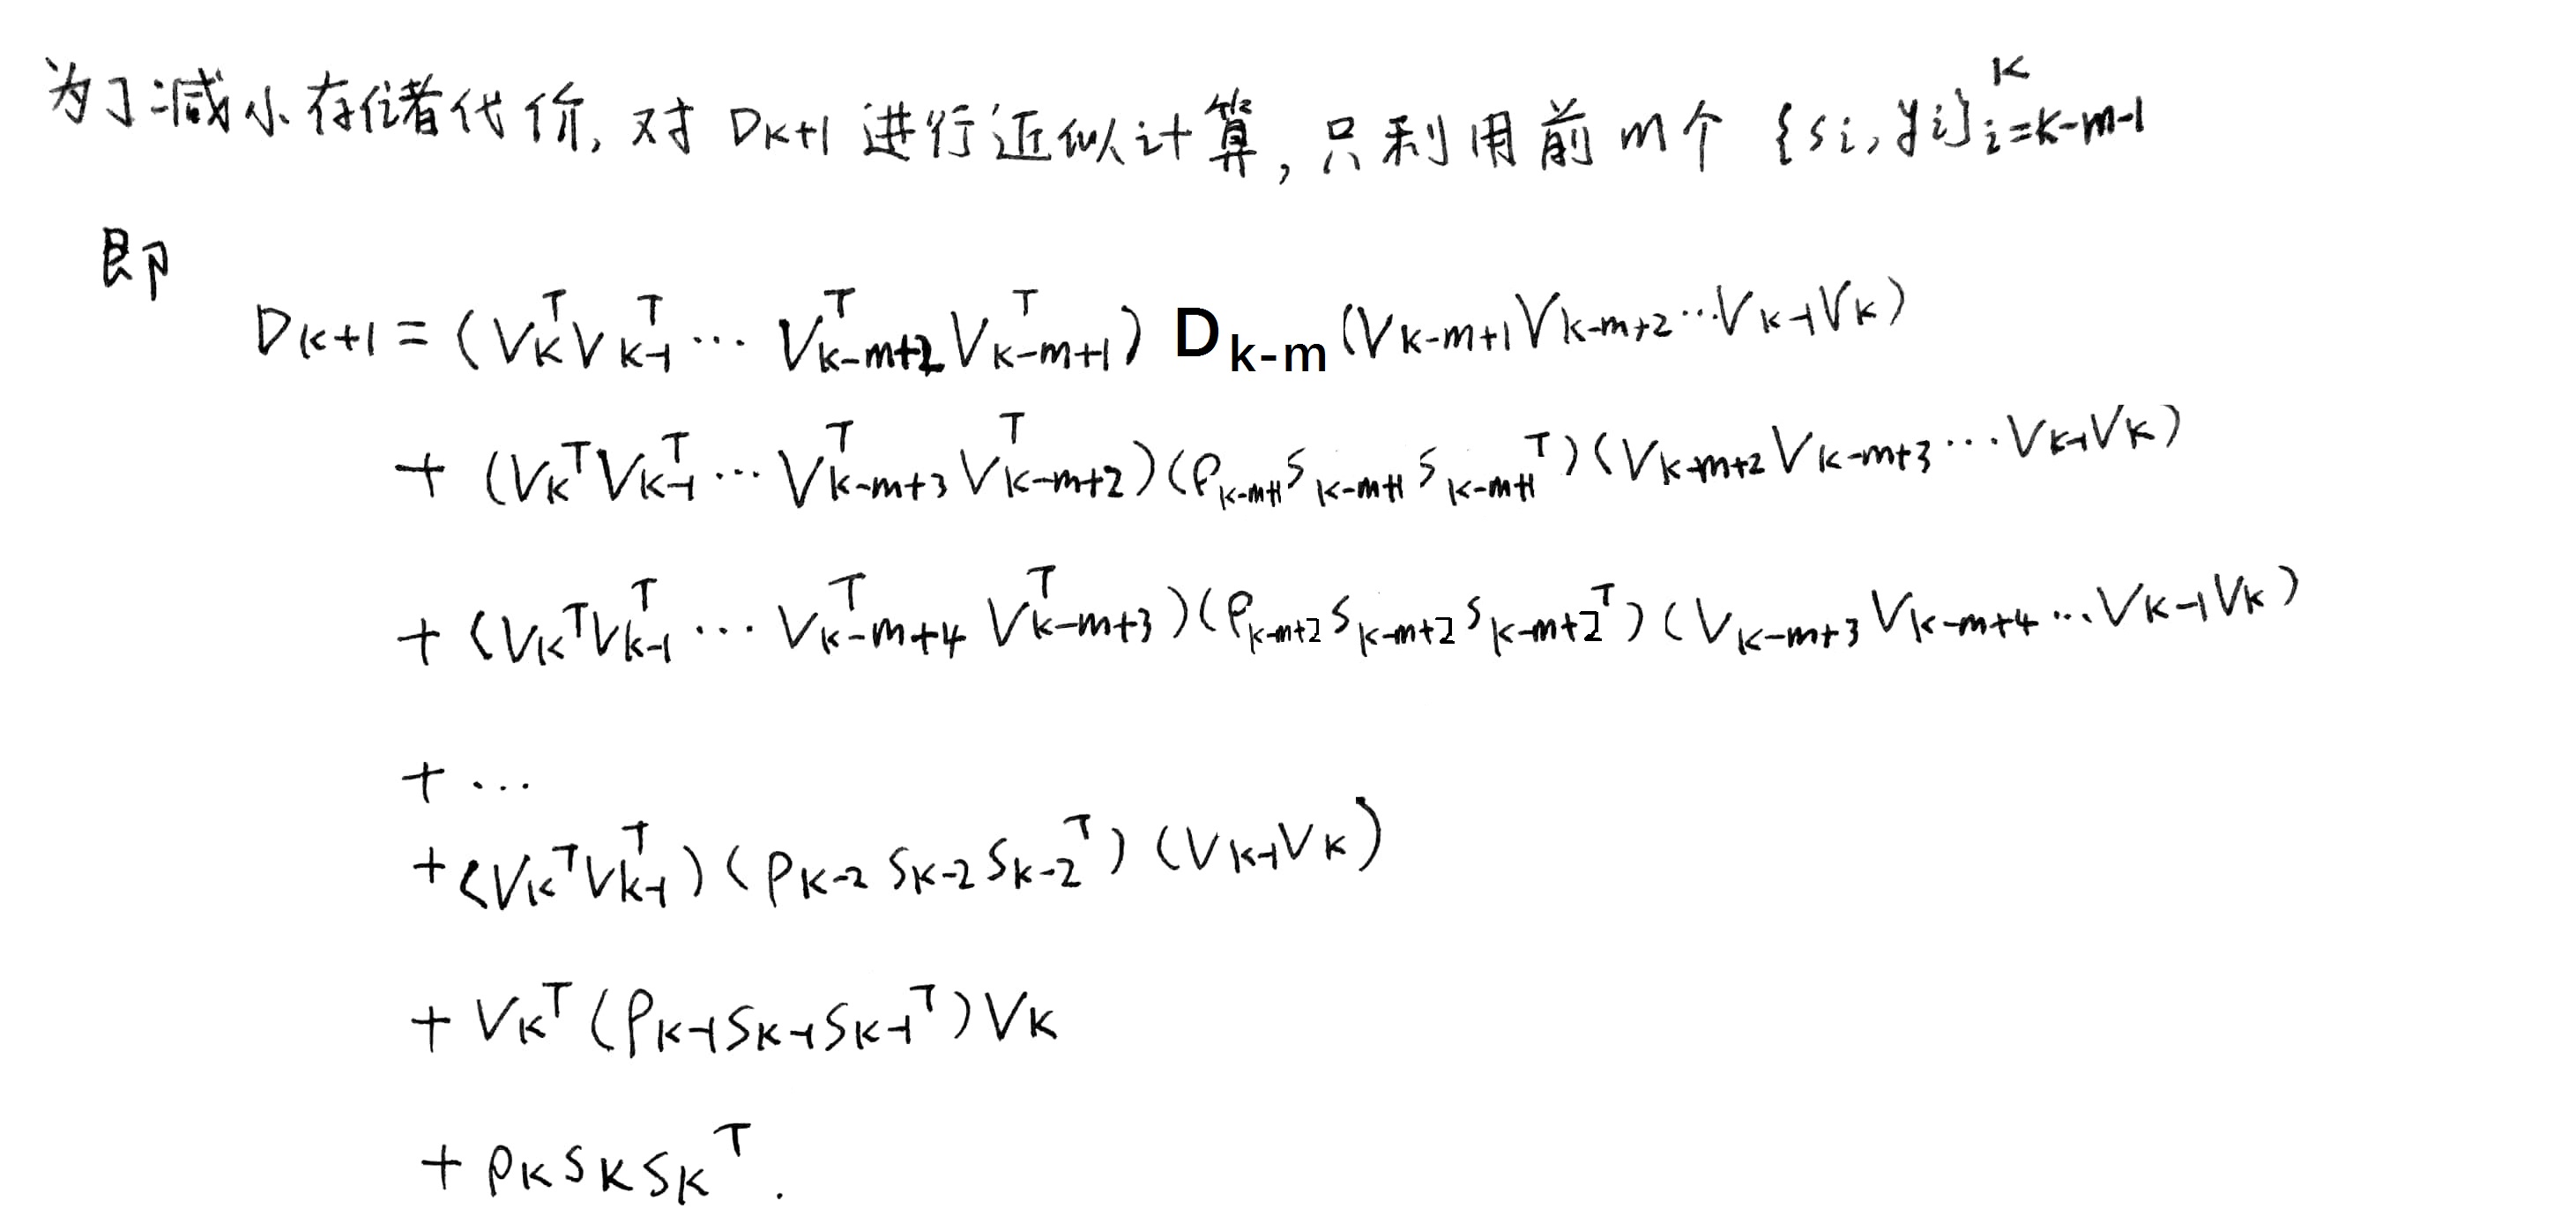 为了减小存储代价, 对 D_{K+1} 进行近似计算, 只利用前 m个 {s_i, y_i}_{i=K-m-1}^{K}
即
D_{K+1} = (V_K^T V_{K-1}^T ⋯ V_{K-m+2}^T V_{K-m+1}^T) D_{k-m} (V_{K-m+1} V_{K-m+2} ⋯ V_{K-1} V_K)
+ (V_K^T V_{K-1}^T ⋯ V_{K-m+3}^T V_{K-m+2}^T)(ρ_{K-m+1} s_{K-m+1} s_{K-m+1}^T)(V_{K-m+2} V_{K-m+3} ⋯ V_{K-1} V_K)
+ (V_K^T V_{K-1}^T ⋯ V_{K-m+4}^T V_{K-m+3}^T)(ρ_{K-m+2} s_{K-m+2} s_{K-m+2}^T)(V_{K-m+3} V_{K-m+4} ⋯ V_{K-1} V_K)
+ ⋯
+ (V_K^T V_{K-1}^T)(ρ_{K-2} s_{K-2} s_{K-2}^T)(V_{K-1} V_K)
+ V_K^T (ρ_{K-1} s_{K-1} s_{K-1}^T) V_K
+ ρ_K s_K s_K^T .